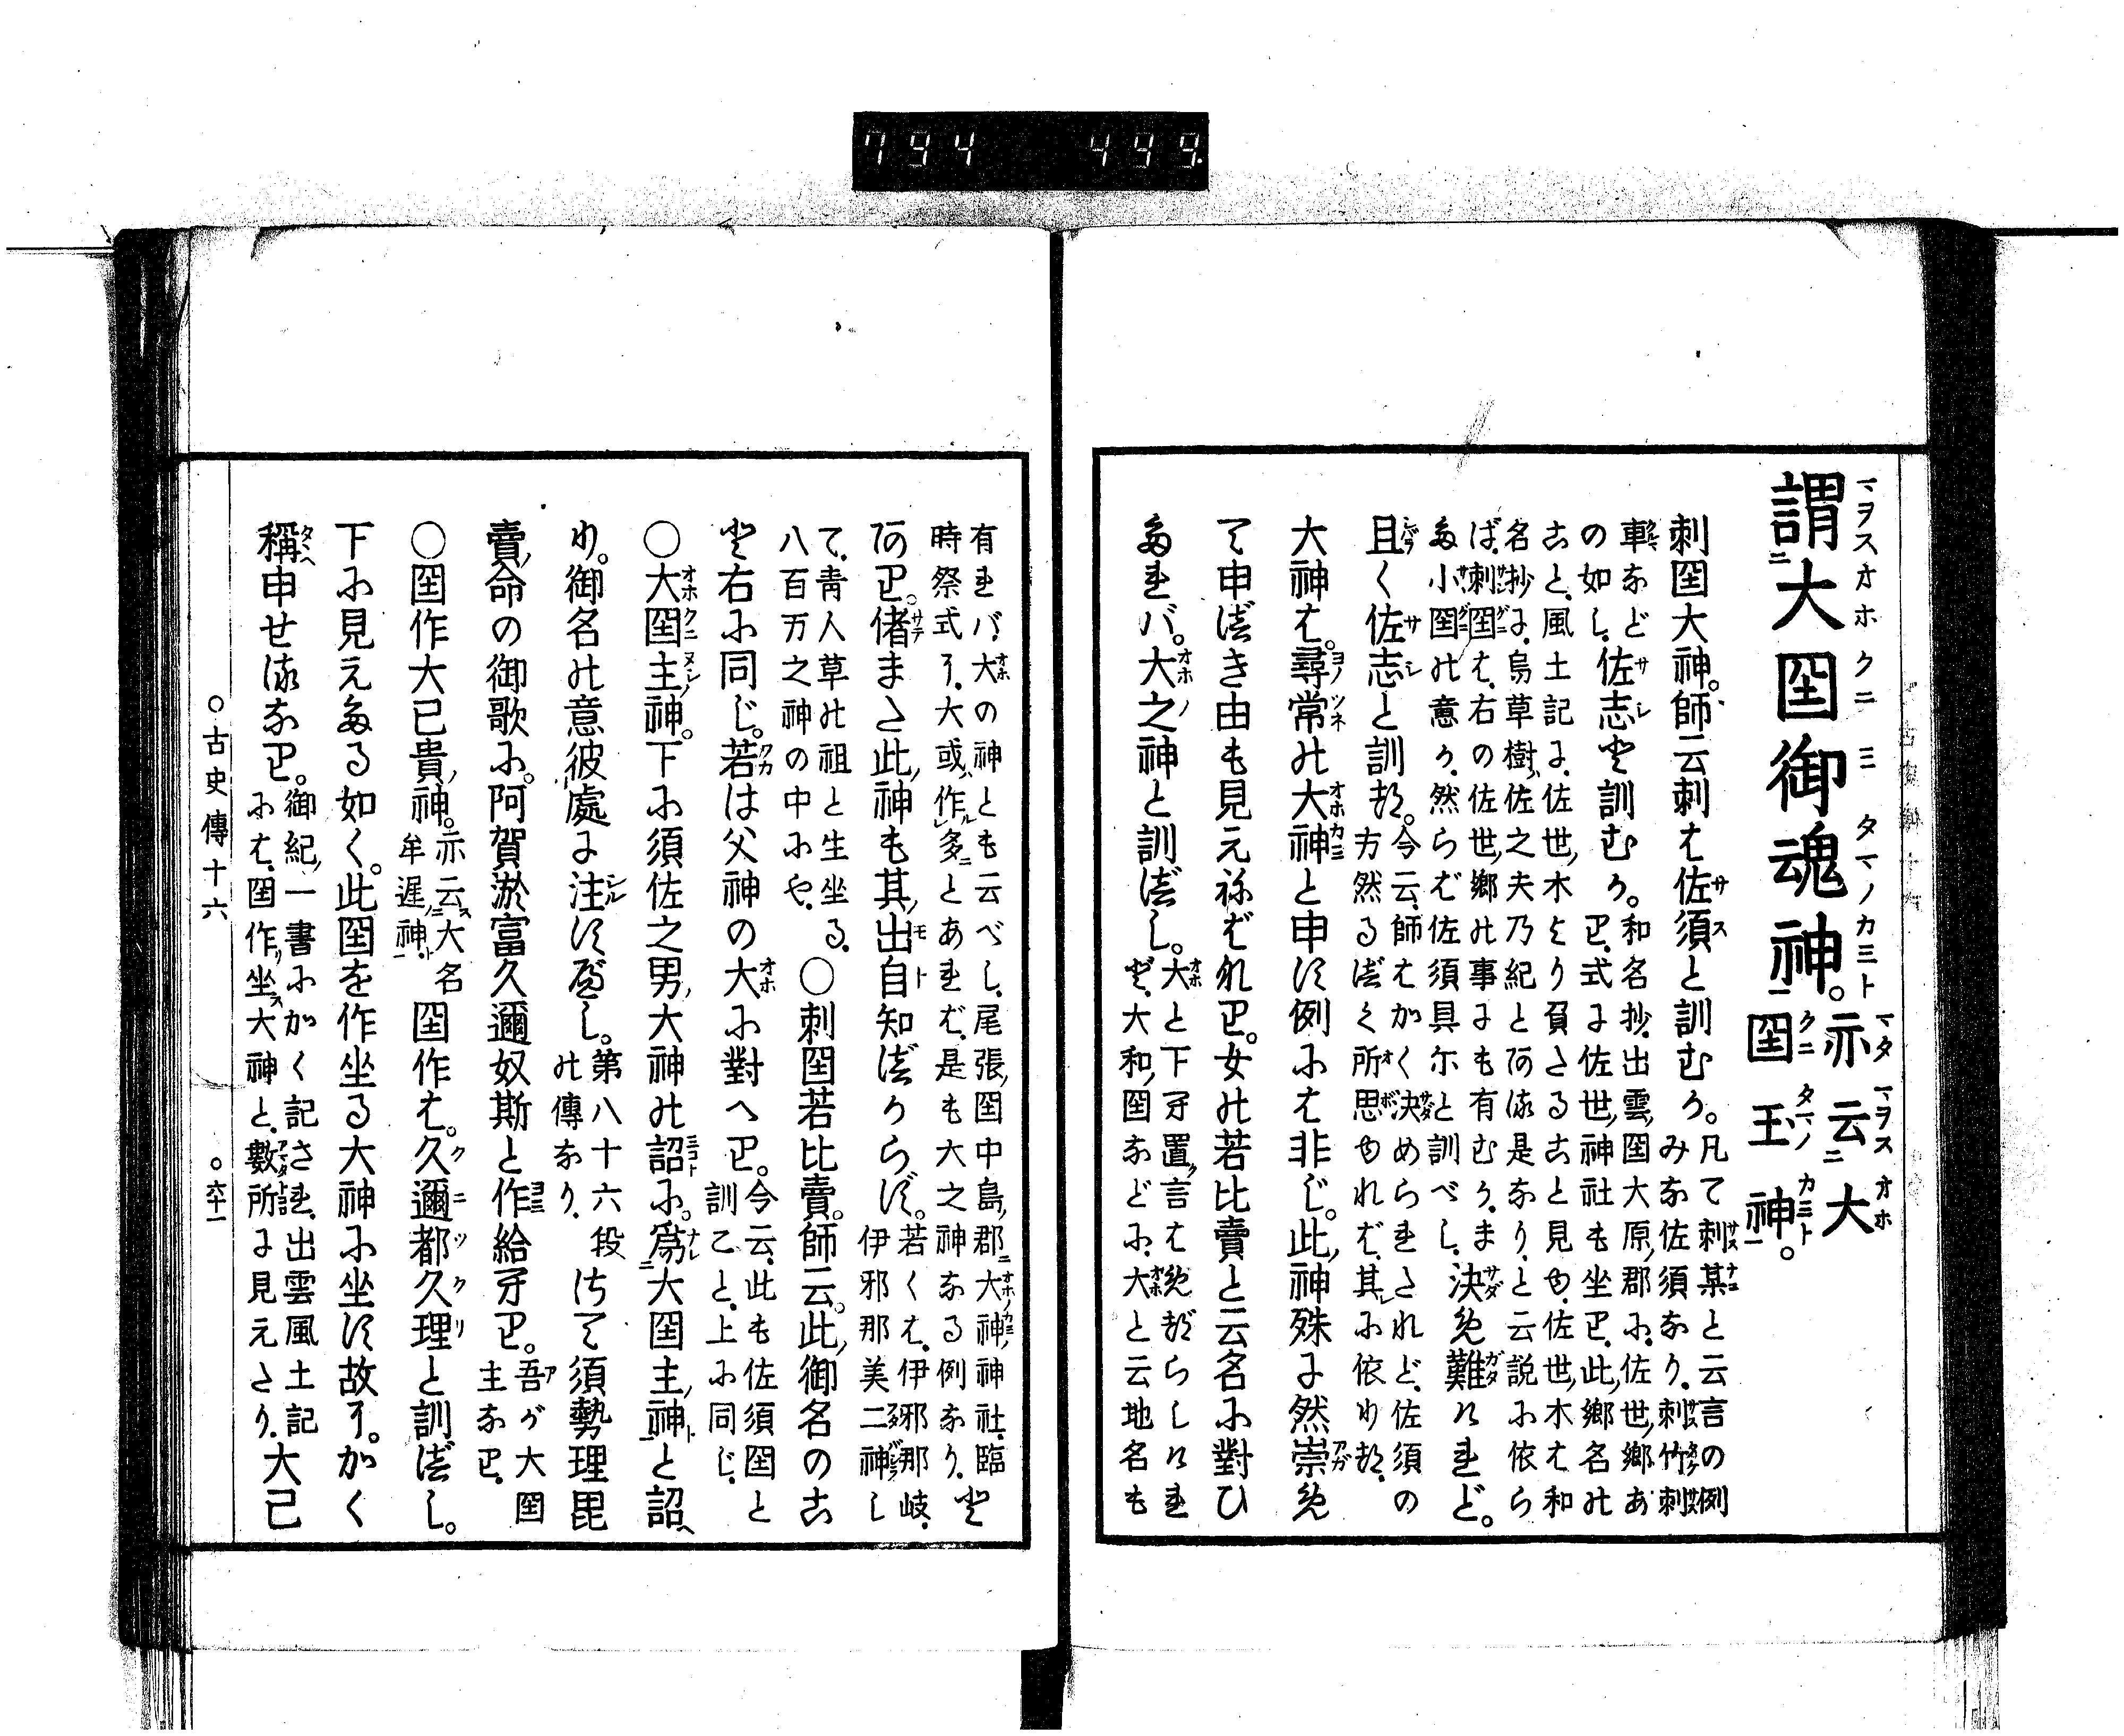 794 499
謂大国御魂神。亦云大
国玉神。
刺国大神。師云刺は佐須と訓むか。凡て刺某と云言の例
みな佐須なり。刺竹刺
車など
の如し。佐志と訓むか。和名抄、出雲国大原郡に、佐世郷あ
り。式に佐世神社も坐り。此郷名の
こと、風土記に、佐世木より負たること見ゆ。佐世木は和
名抄に、烏草樹佐之夫乃紀とある是なり、と云説に依ら
ば、刺国は、右の佐世郷の事にも有むか。ま
た小国の意か、然らば佐須具尓と訓べし。決め難けれど。
且く佐志と訓つ。今云、師はかく決められたれど、佐須の
方然るべく所思ゆれば、其に依りつ。
大神は。尋常の大神と申す例には非じ。此神殊に然崇め
て申べき由も見えねばなり。女の若比賣と云名に対ひ
たれば。大之神と訓べし。大と下に置言はめづらしけれ
ど、大和国などに、大と云地名も
有れば、大の神とも云べし、尾張国中島郡大神神社、臨
時祭式に、大或作多とあれば、是も大之神なる例なり。と
あり。偖また此神も其出自知べからず。若くは、伊邪那岐、
伊邪那美二神し
て、青人草の祖と生坐る、
八百万之神の中にや、○刺国若比賣。師云。此御名のこ
と右に同じ。若は父神の大に對へり。今云、此も佐須国と
訓こと、上に同じ、
○大国主神。下に須佐之男大神の詔に。為大国主神と詔
り。御名の意彼處に注すべし。第八十六段
の傳なり、はて須勢理毘
賣命の御歌に。阿賀淤富久邇奴斯と作給へり。吾が大国
主なり。
○国作大己貴神。亦云大名
牟遅神、国作は。久邇都久理と訓べし。
下に見えたる如く。此国を作坐る大神に坐す故に。かく
稱申せるなり。御紀一書にかく記され、出雲風土記
には、国作坐大神と、數所に見えたり、大己
○古史傳十六 ○六十一